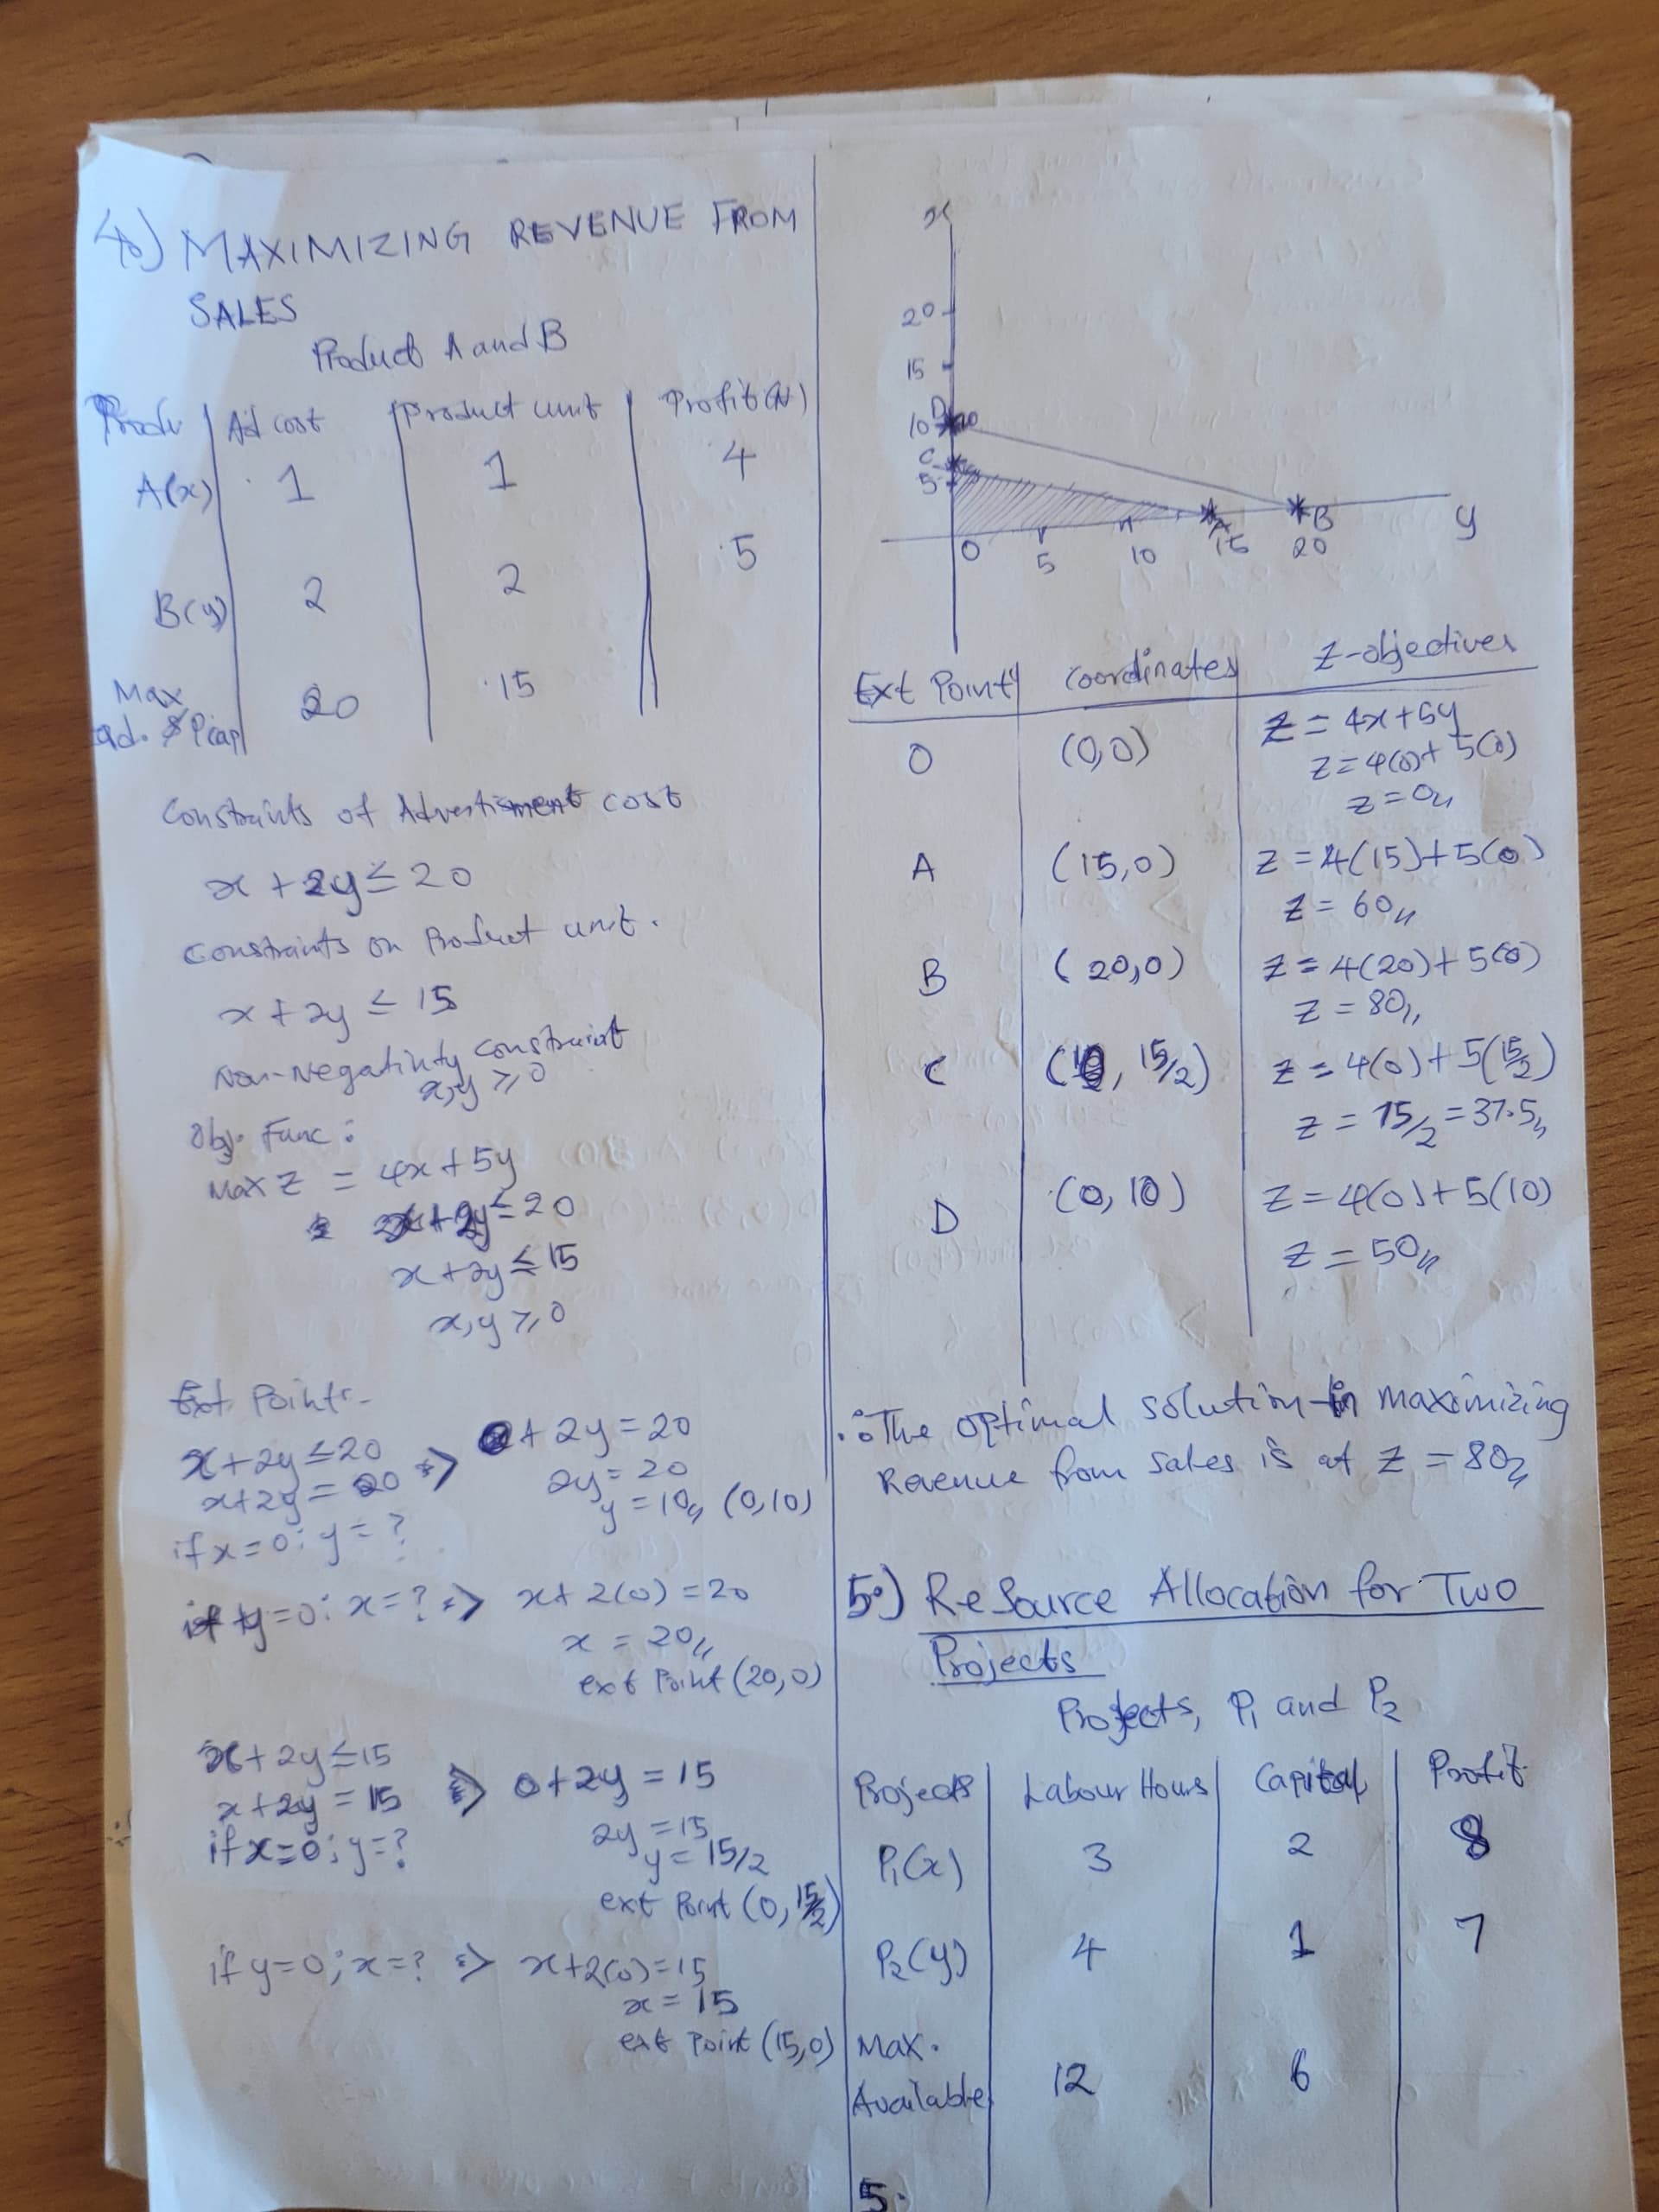 4.) MAXIMIZING REVENUE FROM
SALES
Product A and B
Produ Ad cost Product unit Profit(N)
A(x) 1 1 4
B(y) 2 2 5
Max
ad. & Pcap 20 15
Constraints of Advertisment cost
x + 2y ≤ 20
Constraints on Product unit.
x + 2y ≤ 15
Non-Negativity constraint
x,y ≥ 0
Obj. Func :
Max Z = 4x + 5y
x + 2y ≤ 20
x + 2y ≤ 15
x, y ≥ 0
Ext Point:-
x + 2y ≤ 20 ⇒ 0 + 2y = 20
x + 2y = 20 2y = 20
y = 10,, (0,10)
if x = 0; y = ?
if y = 0: x = ? ⇒ x + 2(0) = 20
x = 20,,
ext Point (20, 0)
x + 2y ≤ 15
x + 2y = 15 ⇒ 0 + 2y = 15
if x = 0; y = ? 2y = 15
y = 15/2
ext Point (0, 15/2)
if y = 0; x = ? ⇒ x + 2(0) = 15
x = 15
ext Point (15, 0)
x
20
15
D
10
C
5
0 5 10 A 15 20 B y
Ext Point Coordinates Z-objectives
O (0,0) Z = 4x + 5y
Z = 4(0) + 5(0)
Z = 0,,
A (15,0) Z = 4(15) + 5(0)
Z = 60,,
B (20,0) Z = 4(20) + 5(0)
Z = 80,,
C (0, 15/2) Z = 4(0) + 5(15/2)
Z = 75/2 = 37.5,,
D (0, 10) Z = 4(0) + 5(10)
Z = 50,,
∴ The optimal solution in maximizing
Revenue from sales is at Z = 80,,
5.) Resource Allocation for Two
Projects
Projects, P1 and P2
Projects Labour Hours Capital Profit
P1(x) 3 2 8
P2(y) 4 1 7
Max.
Available 12 6
5.